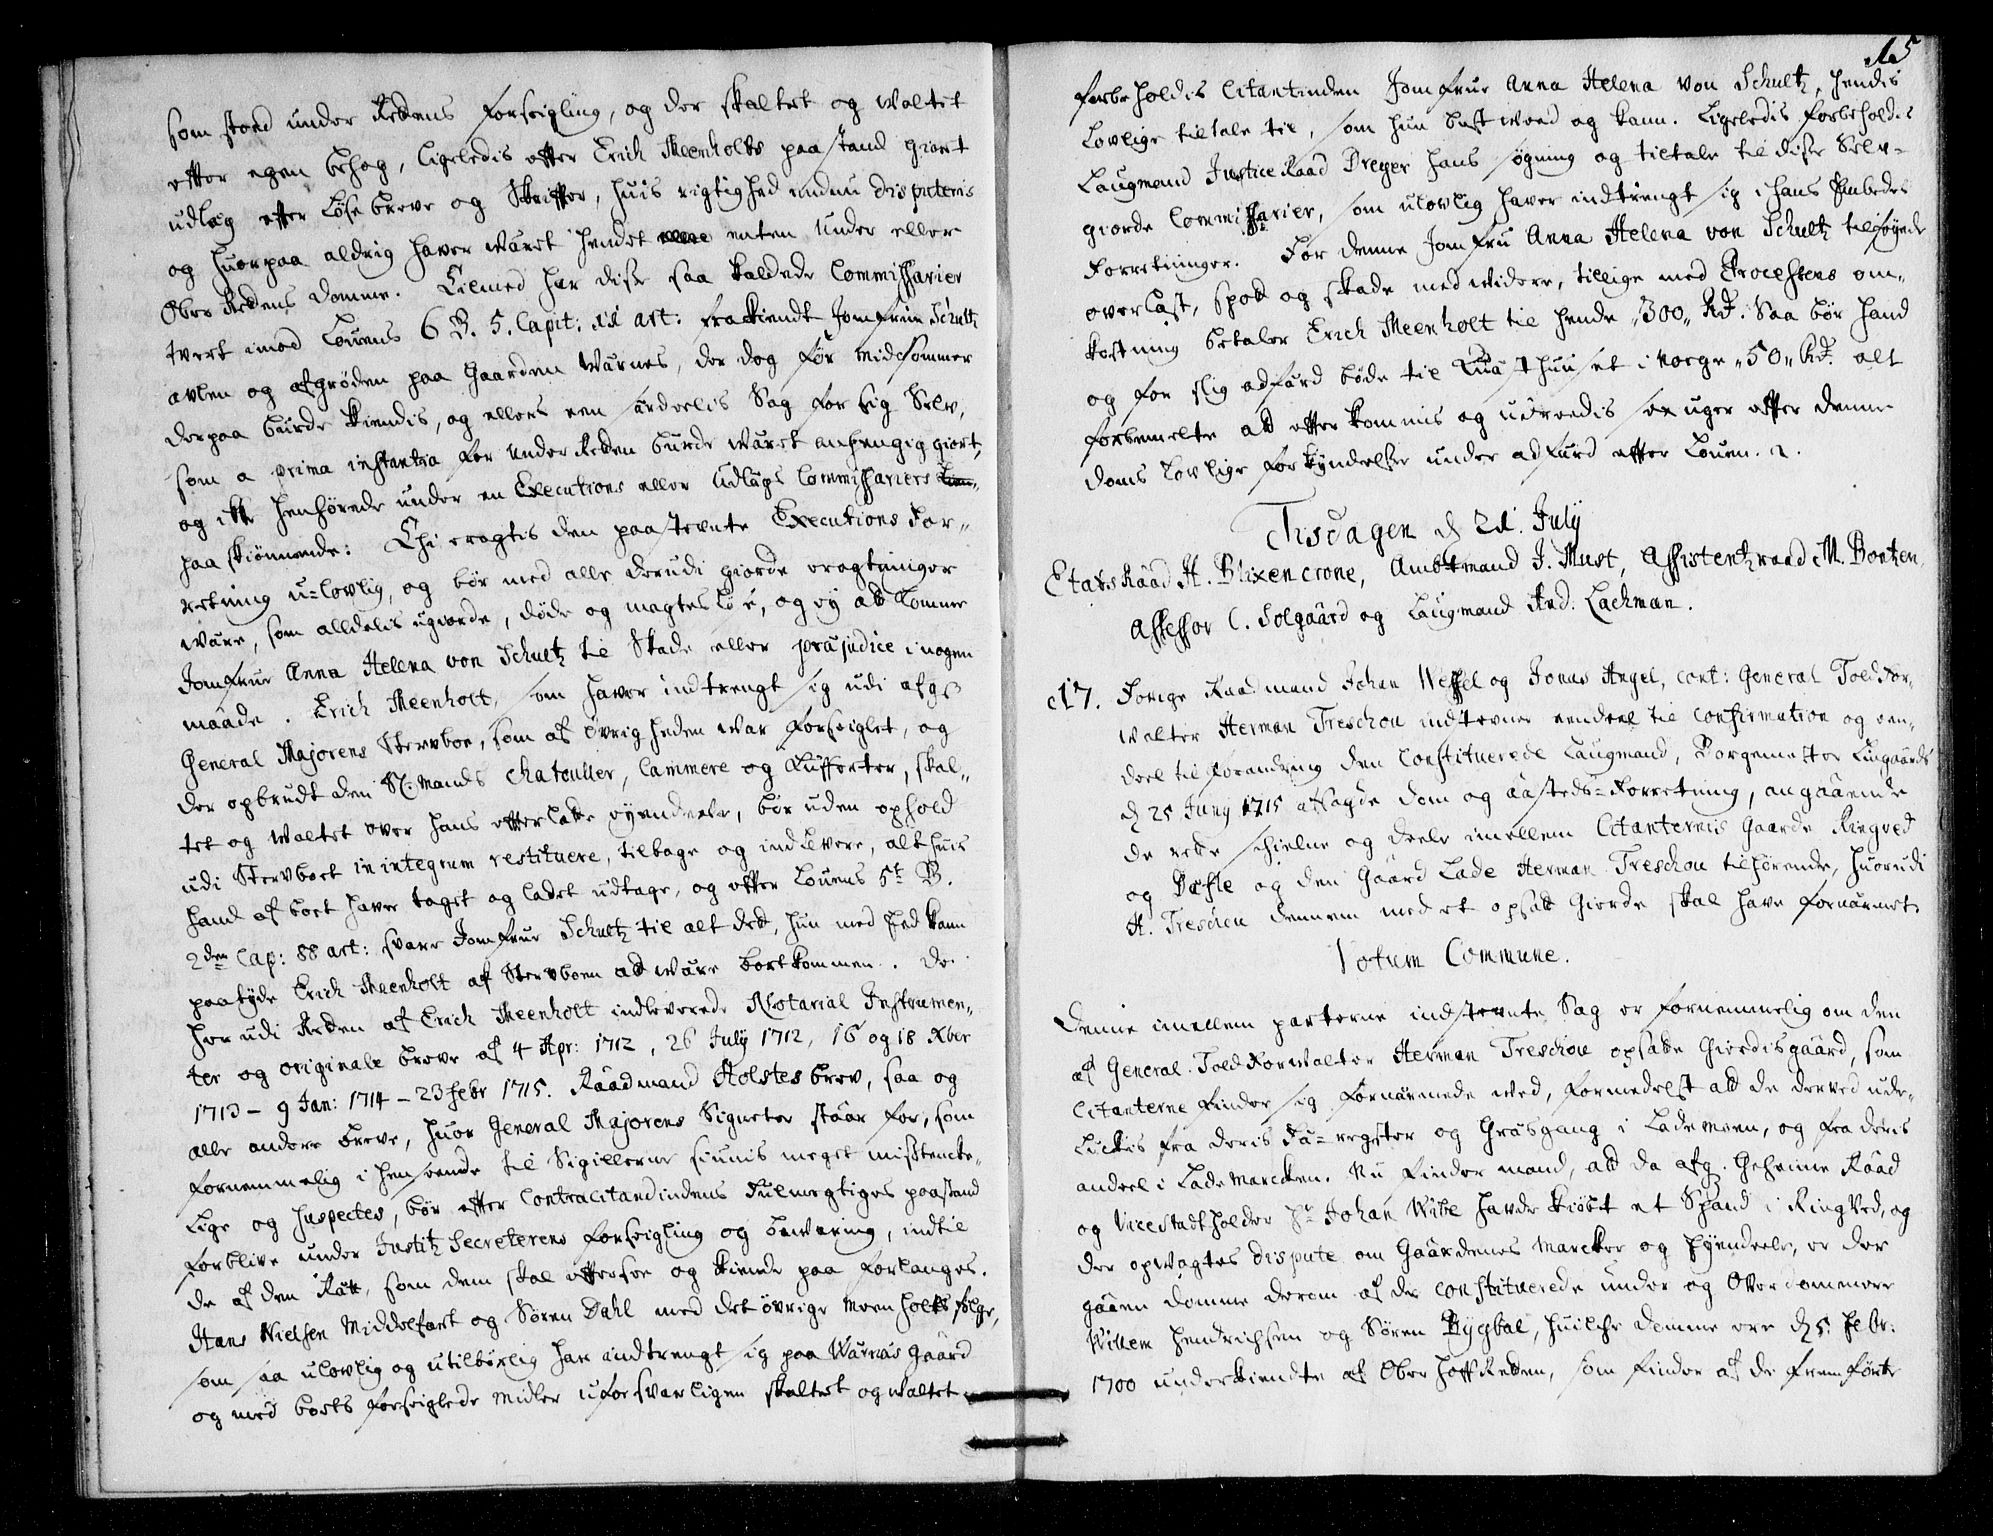 som stoed under Rettens forseigling, og der skaltet og waltet
efter egen behag, ligeledis efter Erich Meenholts paastand giort
udlæg efter løse breve og Skrifter, huis rigtighed endnu disputeris
og huorpaa aldrig haver wæret hendet enten Under eller
Ober Rettens domme. Tilmed har disse saa kaldede Commissarier
tvert imod Louens 6 B. 5. Capit: 11 art: frakiendt Jomfrue Schultz
avlen og afgrøden paa Gaarden Wærnes, der dog før midsommer
derpaa burde kiendis, og ellers een særdeelis Sag for sig Selv,
som a prima instantia for under Retten burde wæret anhengig giort,
og ikke henhørede under en Executions eller Udlægs Commissariers
paaskiønnende: Thi eragtis den paastevnte Executions For„
retning u-lovlig, og bør med alle derudi giorde eragtninger
være, som alldelis ugiorde, døde og magtesløs, og ey att komme
Jomfrue Anna Helena von Schultz til Skade eller præjudice i nogen
maade. Erich Meenholt, som haver indtrengt sig udi afg:
General Majorens Stervboe, som af Øvrigheden war forseiglet, og
der opbrudt den Sl: Mands Chatouller, Cammere og Kufferter, skal„
tet og waltet over hans efterlatte eyendeele, bør uden ophold
udi Stervboet in integrum restituere, tilbage og indlevere, alt huis
hand af boet haver taget og ladet udtage, og efter Louens 5t B.
2den Cap: 88 art: svare Jomfrue Schultz til alt det, hun med Eed kann
paatyde Erich Meenholt af Stervboen att wære bortkommen. De
her udi Retten af Erich Meenholt indleverede Notarial Instrumen„
ter og originale breve af 4 Apr: 1712, 26 July 1712, 16 og 18 Xber
1713 – 9 Jan: 1714 – 23 febr 1715. Raadmand Holstes brev, saa og
alle andere breve, huor General Majorens Signeter staar for, som
fornemmelig i henseende til Sigillerne siunis meget mistencke„
lige og suspectes, bør efter Contracitandindens Fulmegtiges paastand
forblive under Justitz Secreterens forseigling og bevaring, indtil
de af den Ræt, som dem skal eftersee og kiende paa forlanges.
Hans Nielsen Middelfart og Søren Dahl med det øvrige Meenholts følge,
som saa ulovlig og utilbørlig har indtrengt sig paa Wærnæs gaard
og med boets forseiglede midler uforsvarligen skaltet og waltet
15
forbeholdis Citantinden Jomfrue Anna Helena von Schultz, hendis
Lovlige tiltale til, som hun best weed og kann. Ligeledis forbeholdis
Laugmand Justice Raad Dreyer hans søgning og tiltale til disse Selv-
giorde Commissarier, som ulovlig haver indtrengt sig i hans Embedes
Forretninger. For denne Jomfru Anna Helena von Schultz tilføyede
overlast, spott og skade med widere, tillige med Processens om„
kostning betaler Erich Meenholt til hende „300„ Rd. Saa bør hand
og for slig adfærd bøde til Quæsthuuset i Norge „50„ Rd. alt
forbemelte att efterkommis og udreedis sex uger efter denne
doms Lovlige forkyndelse under adfærd efter Louen.
Tisdagen d 21. July
Etats Raad H. Blixencrone, Ambtmand J. Must, Assistentzraad M. Bentzen,
Assessor C. Solgaard og Laugmand And: Lachman.
17. Forige Raadmand Johan Wessel og Jonas Angel, cont: General Toldfor„
walter Herman Treschou indstevner eendeel til confirmation og een„
deel til forandring den Constituerede Laugmand, Borgemester Lingaards
d 25 Juny 1715 afsagde dom og aasteds-Forretning, angaaende
de rette schielne og deele imellem Citanternis Gaarde Ringved
og og den Gaard Lade Herman Treschou tilhørende, huorudi
H. Treschou dennem med et opsatt Gierde skal have fornærmet
Votum Commune.
Denne imellem parterne indstevnte Sag er fornemmelig om den
af General Told Forwalter Herman Treschou opsatte Gierdisgaard, som
Citanterne finder sig fornærmede wed, formedelst att de derved ude„
luckis fra deris Fæ-regster og Græsgang i Lademoen, og fra deris
andeel i Lade marcken. Nu finder mand, att da afg. Geheime Raad
og Vicestadtholder Hr Johan Wibe havde kiøbt et Spand i Ringved, og
der opwagtes dispute om Gaardenes Marcker og Eyendeele, er der
gaaen domme derom af de constituerede under og Overdommere
Willem Hendrichsen og Søren Bygbal, huilche domme ere d 5 Febr:
1700 underkiendte af Ober Hoff Retten, som finder af de fremførte